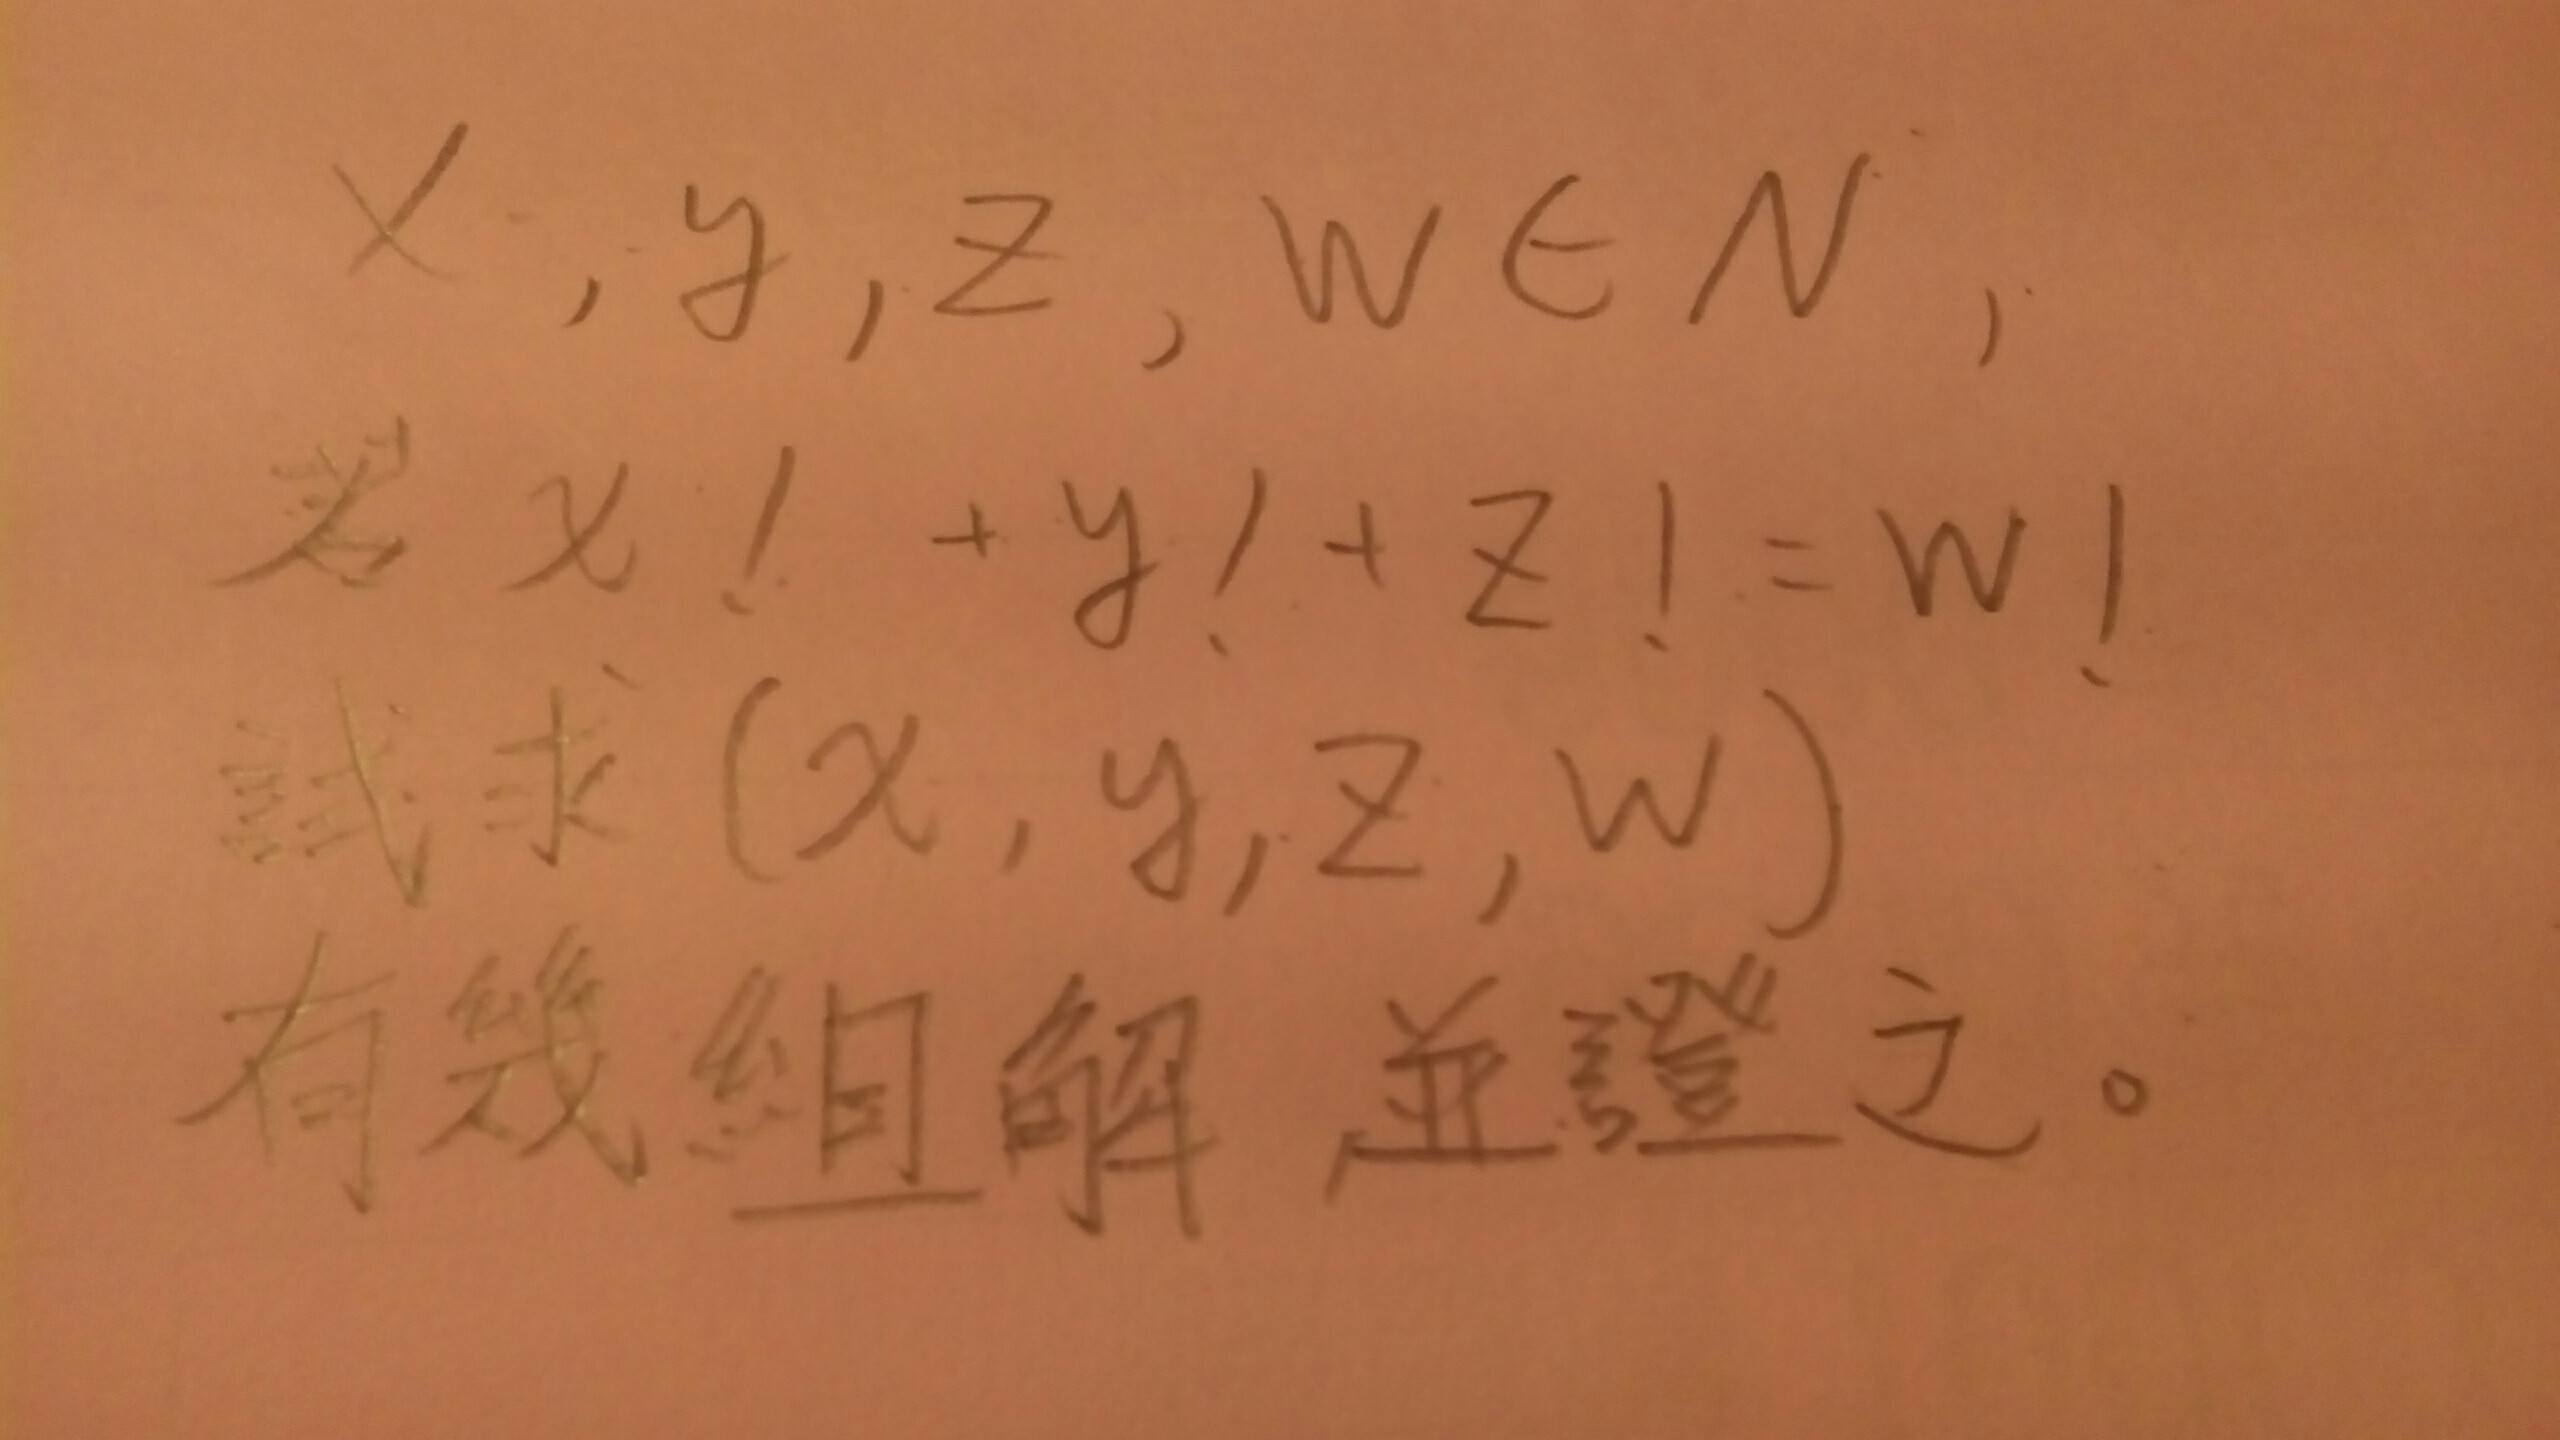 x, y, z, w ∈ N,
若 x! + y! + z! = w!
試求 (x, y, z, w)
有幾組解 並證之。